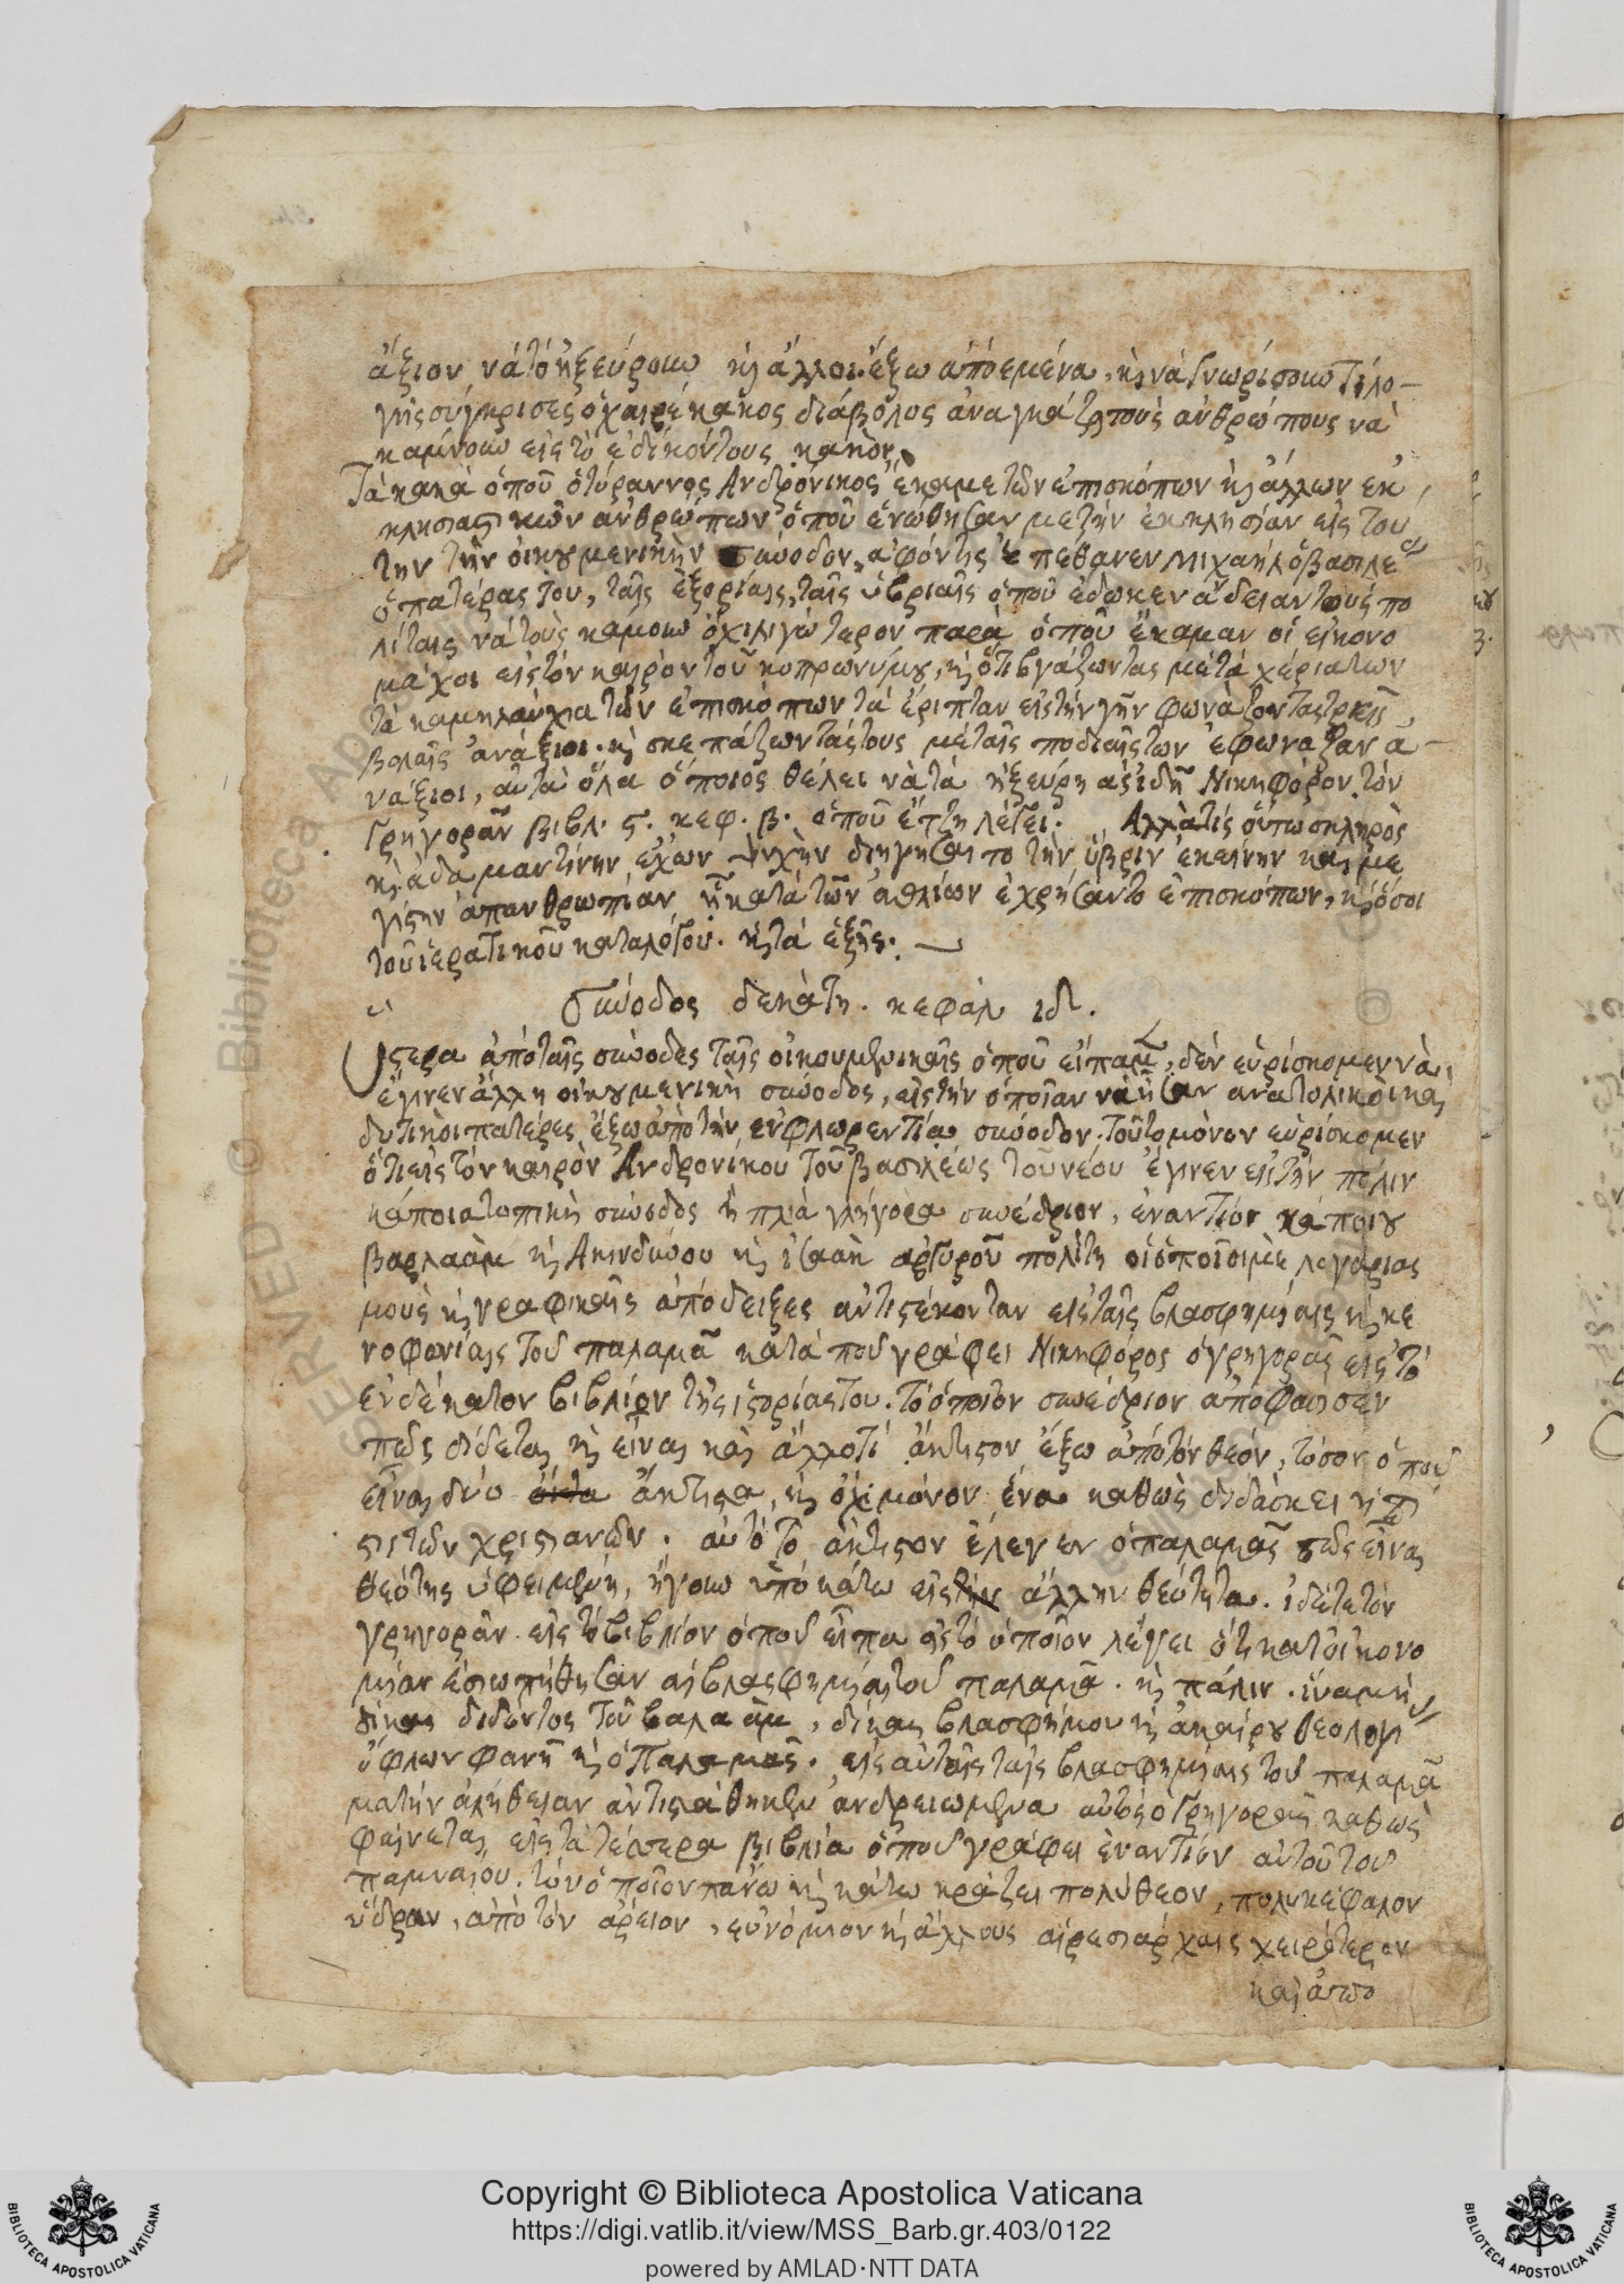 ἄξιον νὰ τὸ ἠξεύρουν κὶ ἄλλοι ἔξω ἀπὸ ἐμένα, κὶ νὰ γνωρίσουν τί λο-
γῆς σύγκρισες ὁ χαιρέκακος διάβολος ἀναγκάζει τοὺς ἀνθρώπους νὰ
καμίνουν εἰς τὸ ἐδικόν τους κακόν.
Τὰ κακὰ ὁποῦ ὁ τύραννος Ἀνδρόνικος ἔκαμε τῶν ἐπισκόπων κὶ ἄλλων ἐκ
κλησιαστικῶν ἀνθρώπων ὁποῦ ἑνώθησαν μὲ τὴν ἐκκλησίαν εἰς του
την τὴν οἰκουμενικὴν σύνοδον, ἀφόντις ἐπέθανεν Μιχαὴλ ὁ βασιλε
ὁ πατέρας του, ταῖς ἐξορίαις, ταῖς ὑβριαῖς ὁποῦ ἔδωκεν ἄδειαν τοὺς πο
λίταις νὰ τοὺς κάμουν ὄχι λιγώτερον παρὰ ὁποῦ ἔκαμαν οἱ εἰκονο
μάχοι εἰς τὸν καιρὸν τοῦ κοπρωνύμου, κὶ ὅτι βγάζωντας μὲ τὰ χέρια των
τὰ καμηλαύχια τῶν ἐπισκόπων τὰ ἔριπταν εἰς τὴν γῆν φωνάζοντας τρεῖς
βολαῖς ἀνάξιοι. κὶ σκεπάζωντάς τους μὲ ταῖς ποδιαῖς των ἐφώναζαν ἀ-
νάξιοι, αὐτὰ ὅλα ὅποιος θέλει νὰ τὰ ἠξεύρη ἂς ἰδῆ Νικηφόρον τὸν
Γρηγορᾶν βιβλ. ς. κεφ. β. ὁποῦ ἔτζη λέγει. Ἀλλὰ τίς οὕτω σκληρὸς
κὶ ἀδαμαντίνην ἔχων ψυχὴν διηγήσαιτο τὴν ὕβριν ἐκείνην καὶ με
γίστην ἀπανθρωπίαν ᾗ κατὰ τῶν ἀθλίων ἐχρήσαντο ἐπισκόπων, κὶ ὅσοι
τοῦ ἱερατικοῦ καταλόγου. κὶ τὰ ἑξῆς.
Σύνοδος δεκάτη. κεφάλ ιδ.
Ὕστερα ἀπὸ ταῖς σύνοδες ταῖς οἰκουμενικαῖς ὁποῦ εἴπαμ, δὲν εὑρίσκομεν νὰ
ἔγινεν ἄλλη οἰκουμενικὴ σύνοδος, εἰς τὴν ὁποῖαν νὰ ἦσαν ἀνατολικοὶ καὶ
δυτικοὶ πατέρες ἔξω ἀπὸ τὴν ἐν Φλωρεντία σύνοδον. τοῦτο μόνον εὑρίσκομεν
ὅτι εἰς τὸν καιρὸν Ἀνδρονίκου τοῦ βασιλέως τοῦ νέου ἔγινεν εἰς τὴν πόλιν
κάποια τοπικὴ σύνοδος ἢ πλιὰ γλήγορα συνέδριον, ἐναντίον κάποιου
βαρλαὰμ κὶ Ἀκινδύνου κὶ ἰσαὰκ ἀργυροῦ πολίτη οἱ ὁποῖοι μὲ λογαρίας
μοὺς κὶ γραφικαῖς ἀπόδειξες ἀντιστέκονταν εἰς ταῖς βλασφημίαις κὶ κε
νοφωνίαις τοῦ παλαμᾶ κατὰ ποῦ γράφει Νικηφόρος ὁ γρηγορᾶς εἰς τὸ
ἑνδέκατον βιβλίον τῆς ἱστορίας του. τὸ ὁποῖον συνέδριον ἀποφάσισεν
πῶς δίδεται κὶ εἶναι καὶ ἄλλο τί ἄκτιστον ἔξω ἀπὸ τὸν θεόν, τόσον ὁποῦ
εἶναι δύο ἄκτιστα, κὶ ὄχι μόνον ἕνα καθὼς διδάσκει ἡ πί
στι τῶν χριστιανῶν. αὐτὸ τὸ ἄκτιστον ἔλεγεν ὁ παλαμᾶς πῶς εἶναι
θεότης ὑφειμένη, ἤγουν ὑποκάτω εἰς τὴν ἄλλην θεότητα. ἰδέτε τὸν
γρηγορᾶν εἰς τὸ βιβλίον ὁποῦ εἶπα εἰς τὸ ὁποῖον λέγει ὅτι κατ' οἰκονο
μίαν ἐσιωπήθησαν αἱ βλασφημίαι τοῦ παλαμᾶ. κὶ πάλιν. ἵνα μὴ
δίκας διδόντος τοῦ βαλαὰμ, δίκας βλασφήμου κὶ ἀκαίρου θεολογι
ὄφλων φανῆ κὶ ὁ Παλαμᾶς. εἰς αὐταῖς ταῖς βλασφημίαις τοῦ παλαμᾶ
μα τὴν ἀλήθειαν ἀντιστάθηκεν ἀνδρειωμένα αὐτὸς ὁ Γρηγορᾶς καθὼς
φαίνεται εἰς τὰ τέσσερα βιβλία ὁποῦ γράφει ἐναντίον αὐτοῦ τοῦ
παμναίου. τὸν ὁποῖον πάνω κὶ κάτω κράζει πολύθεον, πολυκέφαλον
ὕδραν, ἀπὸ τὸν ἄρειον, εὐνόμιον κὶ ἄλλους αἱρεσιάρχαις χειρότερον
καὶ ἀπὸ
Copyright © Biblioteca Apostolica Vaticana
https://digi.vatlib.it/view/MSS_Barb.gr.403/0122
powered by AMLAD·NTT DATA